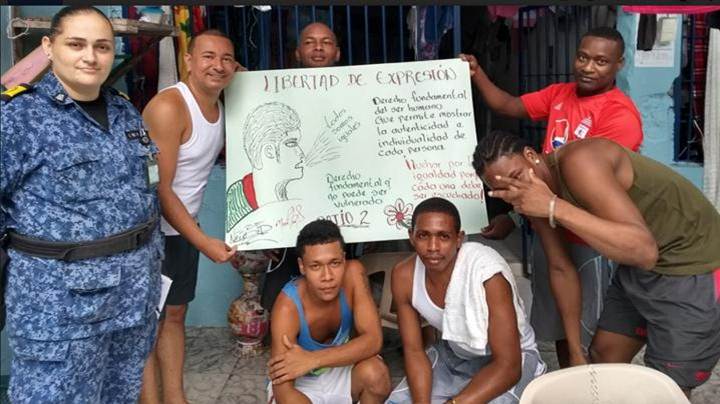 LIBERTAD DE EXPRESIÓN
todos
somos
iguales
Derecho fundamental
del ser humano
que permite mostrar
la autenticidad e
individualidad de
cada persona.
Derecho
fundamental q'
no puede ser
vulnerado
PATIO 2
¡luchar por
igualdad por
cada uno de
ser escuchado!